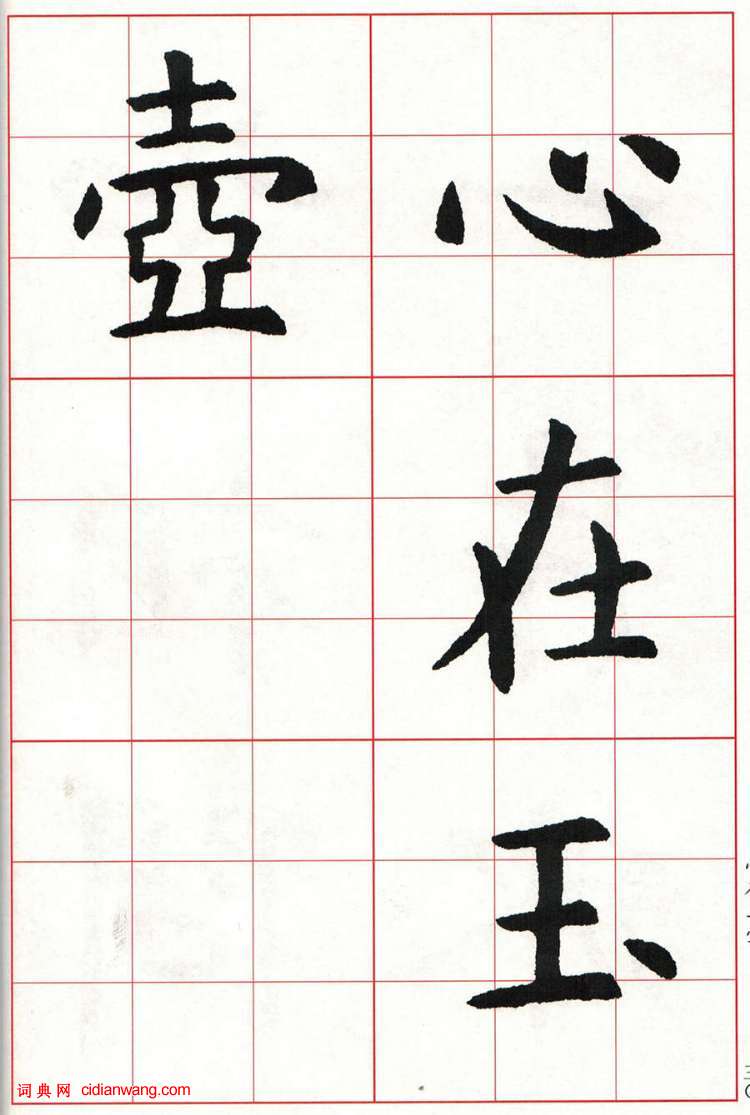 心在玉
壺
词典网 cidianwang.com